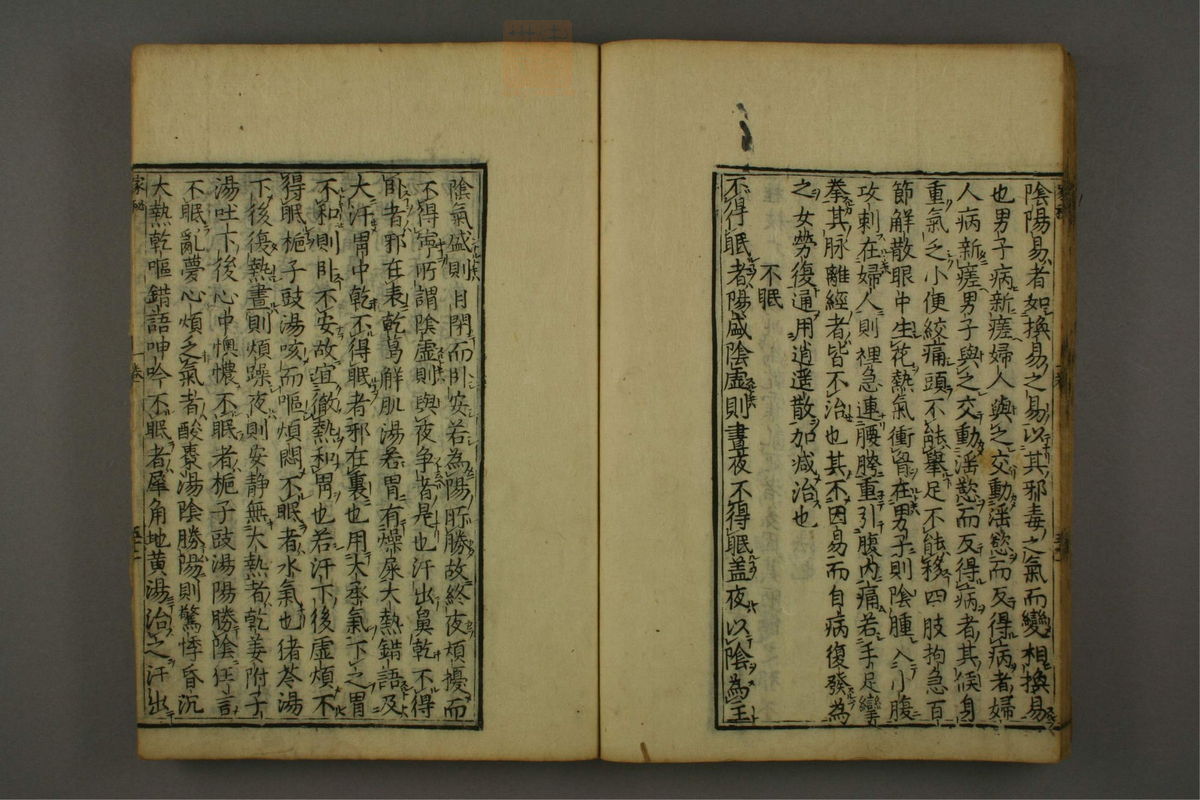 陰陽易者如換易之易以其邪毒之氣而變相換易
也男子病新瘥婦人與之交動淫慾而反得病者婦
人病新瘥男子與之交動淫慾而反得病者其候身
重氣乏小便絞痛頭不能擧足不能移四肢拘急百
節解散眼中生花熱氣衝胷在男子則陰腫入小腹
攻刺在婦人則裡急連腰胯重引腹內痛若手足攣
拳其脉離經者皆不治也其不因易而自病復發為
之女勞復通用逍遥散加减治也
不眠
不得眠者陽盛陰虛則晝夜不得眠盖夜以陰為主
陰氣盛則目閉而卧安若為陽所勝故終夜煩擾而
不得寕所謂陰虛則與夜争者是也汗出鼻乾不得
卧者邪在表乾葛解肌湯若胃有燥屎大熱錯語及
大汗胃中乾不得眠者邪在裏也用大承氣下之胃
不和則卧不安故宜徹熱和胃也若汗下後虛煩不
得眠梔子豉湯咳而嘔煩悶不眠者水氣也猪苓湯
下後復熱晝則煩躁夜則安静無大熱者乾姜附子
湯吐下後心中懊憹不眠者梔子豉湯陽勝陰狂言
不眠亂夢心煩乏氣者酸棗湯陰勝陽則驚悸昏沉
大熱乾嘔錯語呻吟不眠者犀角地黄湯治之汗出